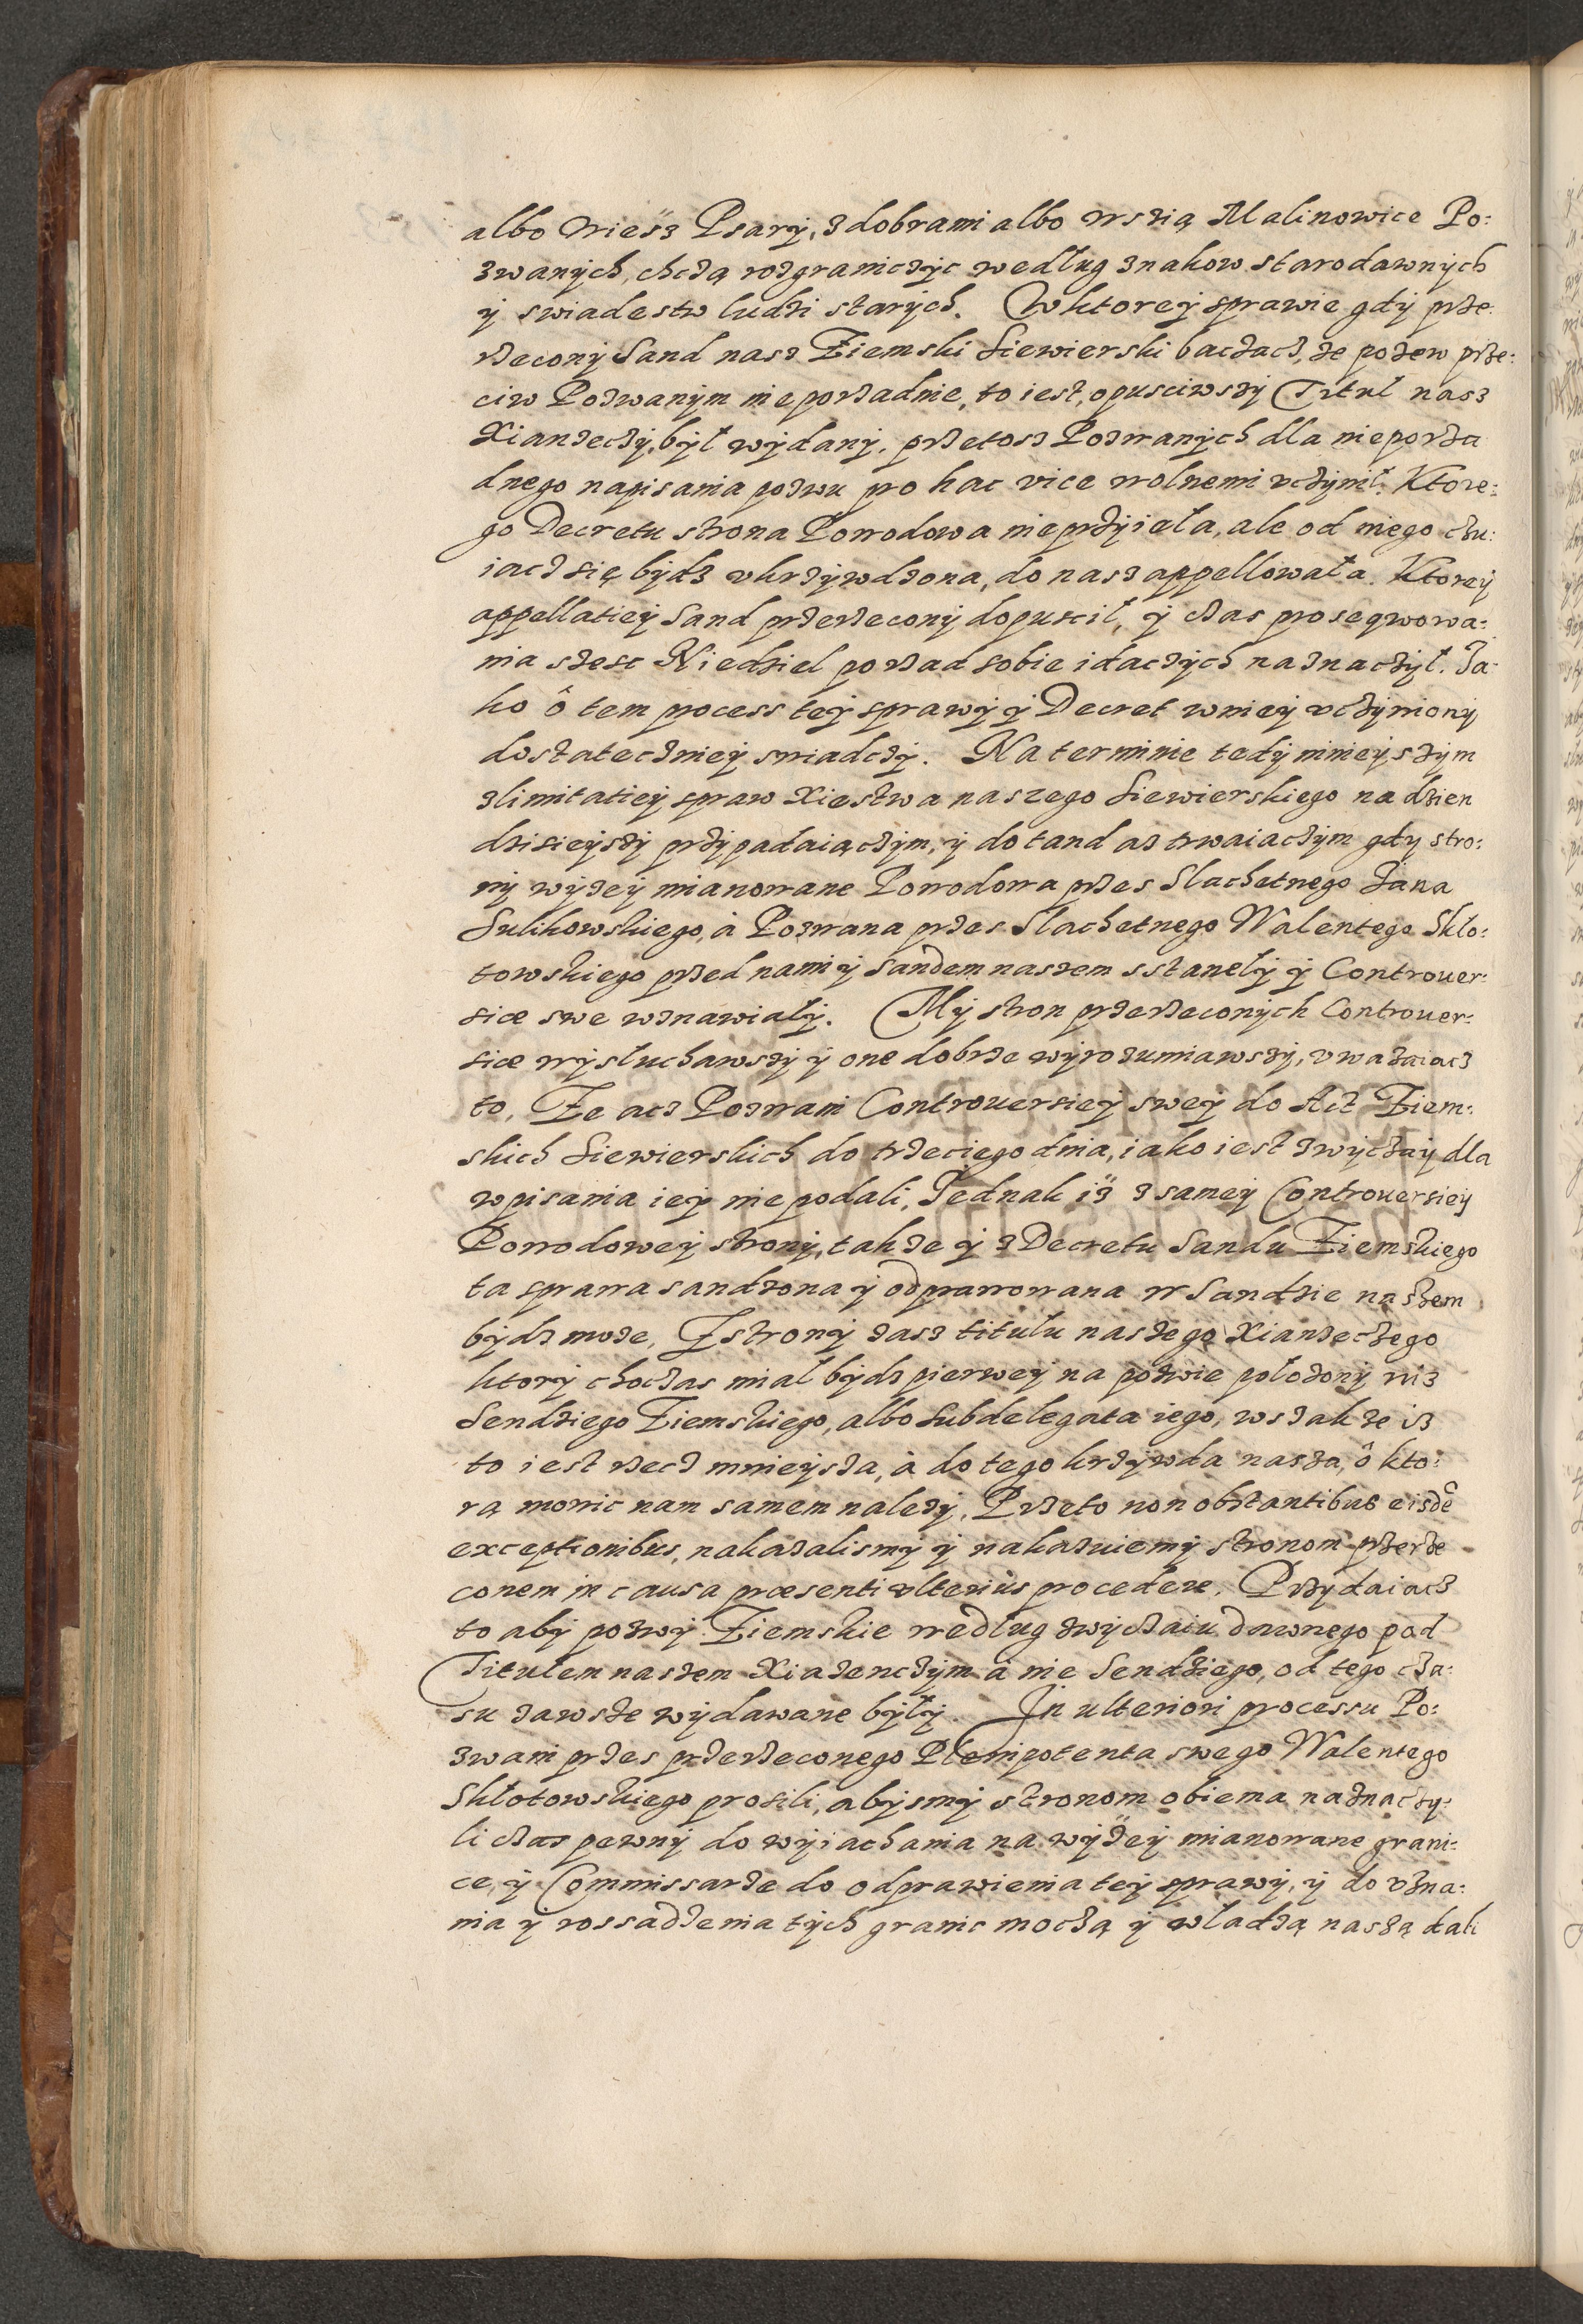 albo wiesz Psarÿ, z dobrami albo wszią Malinowice Po:
zwanÿch, chczą rozgraniczÿc według znakow starodawnÿch
ÿ swiadestw ludzi starÿch. W ktoreÿ sprawie gdÿ prze:
rzeconÿ Sand nasz Ziemski Siewierski baczacz, ze pozew prze:
ciw Pozwanÿm nieporzadnie, to iest, opusciwszÿ Titul nasz
Xianzeczÿ, bÿł wÿdanÿ, przetosz Pozwanÿch dla nieporza
dnego napisania pozwu pro hac vice wolnemi vczÿnił. Ktore:
go Decretu strona Powodowa nie przÿięła, ale od niego czu:
iacz się bÿdz vkrzÿwdzona, do nasz appellowała. Ktoreÿ
appellatieÿ Sand przerzeconÿ dopuscił, ÿ czas proseqwowa:
nia szesc Niedziel porzad sobie idaczÿch naznaczÿł. Ja:
ko ô tem process teÿ sprawÿ ÿ Decret w nieÿ vczÿnionÿ
dostateczniej swiadczÿ. Na terminie tedÿ ninieÿszÿm
z limitatieÿ spraw Xiestwa naszego Siewierskiego na dzien
dzisieÿszÿ przÿpadaiączÿm, ÿ do tand az trwaiaczÿm gdy stro:
nÿ wÿzeÿ mianowane Powodowa przes Slachetnego Jana
Sulikowskiego, à Pozwana przes Slachetnego Walentego Skło:
towskiego przed nami ÿ Sandem naszem sstanełÿ ÿ Controuer:
siæ swe wznawiałÿ. Mÿ stron przerzeconÿch Controuer:
siæ wÿsłuchawszÿ ÿ one dobrze wÿrozumiawszÿ, vwazaiacz
to, Ze acz Pozwani Controuersieÿ sweÿ do Act Ziem:
skich Siewierskich do trzeciego dnia, iako iest zwÿczaÿ dla
wpisania ieÿ nie podali, Jednak isz z sameÿ Controuersieÿ
Powodoweÿ stronÿ, takze ÿ z Decretu Sandu Ziemskiego
ta sprawa sandzona ÿ odprawowana w Sandzie naszem
bÿdz moze, Z stronÿ zasz titułu naszego Xianzęczego
ktorÿ choczas miał bÿdz pierweÿ na pozwie położonÿ nisz
Sendziego Ziemskiego, albo Subdelegata iego, wszakze isz
to iest rzecz mnieÿsza, à do tego krzÿwda nasza, ô kto:
rą mowic nam samem nalezÿ, Przeto non obstantibus eisdē
exceptionibus, nakazalismÿ ÿ nakazuiemÿ stronom przerze
conem in causa præsenti vlteriùs procedere, Przÿdaiacz
to abÿ pozwÿ Ziemskie według zwÿczaiu dawnego pod
Titułem naszem Xiazenczÿm à nie Sendziego, od tego cza:
su zawsze wÿdawane bÿłÿ. In ulteriori processu Po:
zwani przes przerzeconego Plenipotenta swego Walentego
Skłotowskiego prosili, abÿsmÿ stronom obiema naznaczÿ:
li czas pewnÿ do wÿiachania na wÿzeÿ mianowane grani:
ce, ÿ Commissarze do odprawienia teÿ sprawÿ, ÿ do vzna:
nia ÿ rossadzenia tÿch granic moczą ÿ władzą naszą dali